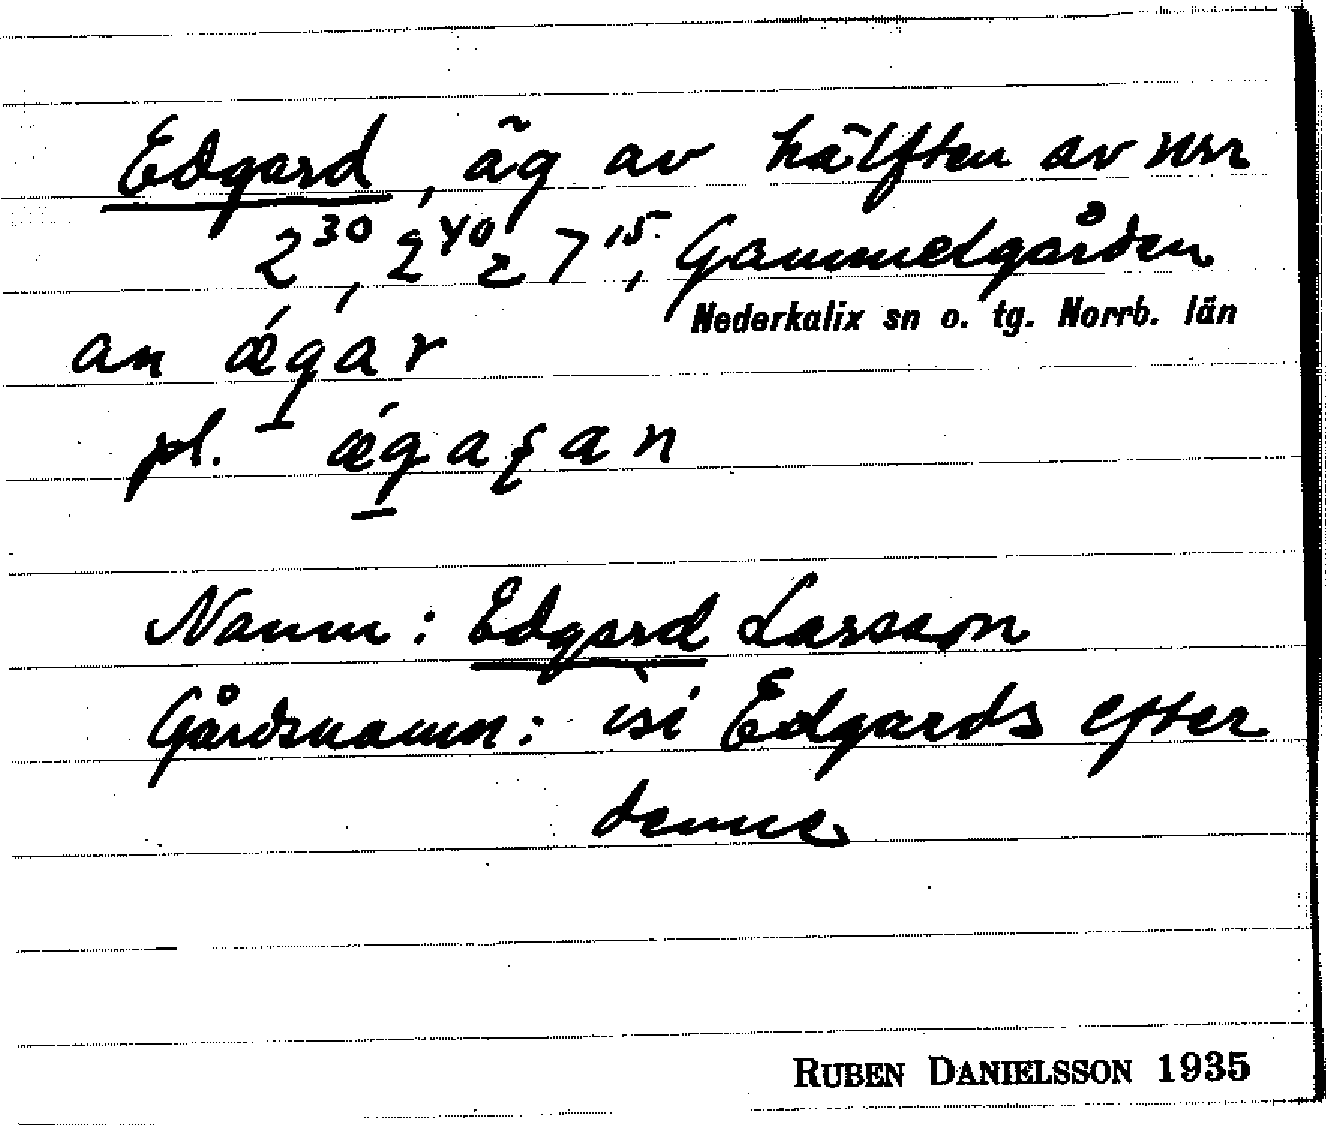 Edgard, äg av hälften av nsr
2³⁰, 2⁴⁰ z 7¹⁵, Gammelgården
Nederkalix sn o. tg. Norrb. län
an ǽgar
pl. ǽgaʂan
Namn: Edgard Larsson
Gårdsnamn: isi Edgards efter
denne
RUBEN DANIELSSON 1935